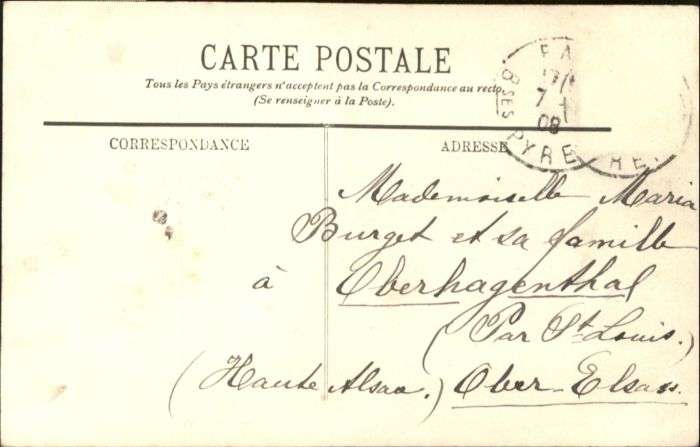 CARTE POSTALE
Tous les Pays étrangers n'acceptent pas la Correspondance au recto.
(Se renseigner à la Poste).
CORRESPONDANCE
ADRESSE
7
08
BSES PYRE
RE
Mademoiselle Maria
Burget et sa famille
à Oberhagenthal
(Par St. Louis.)
(Haute Alsace.) Ober-Elsass.